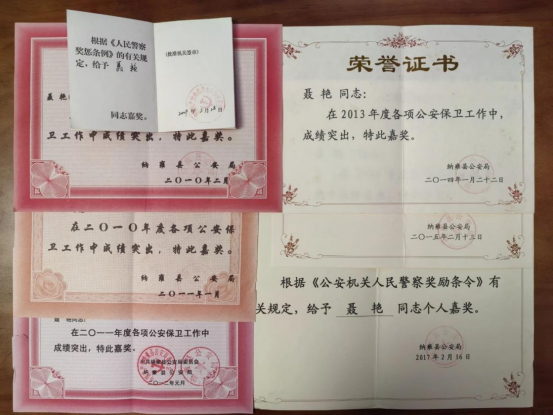 根据《人民警察
奖惩条例》的有关规
定,给予 聂艳
同志嘉奖。
(批准机关签章)
聂艳
卫工作中成绩突出,特此嘉奖。
纳雍县公安局
二〇一〇年二月
在二〇一〇年度各项公安保
卫工作中成绩突出,特此嘉奖。
纳雍县公安局
二〇一一年一月
聂艳同志:
在二〇一一年度各项公安保卫工作中
成绩突出,特此嘉奖。
纳雍县公安局
二〇一二年元月
荣誉证书
聂艳 同志:
在2013年度各项公安保卫工作中,
成绩突出,特此嘉奖。
纳雍县公安局
二〇一四年一月二十二日
纳雍县公安局
二〇一五年二月十二日
根据《公安机关人民警察奖励条令》有
关规定,给予 聂 艳 同志个人嘉奖。
纳雍县公安局
2017年2月16日